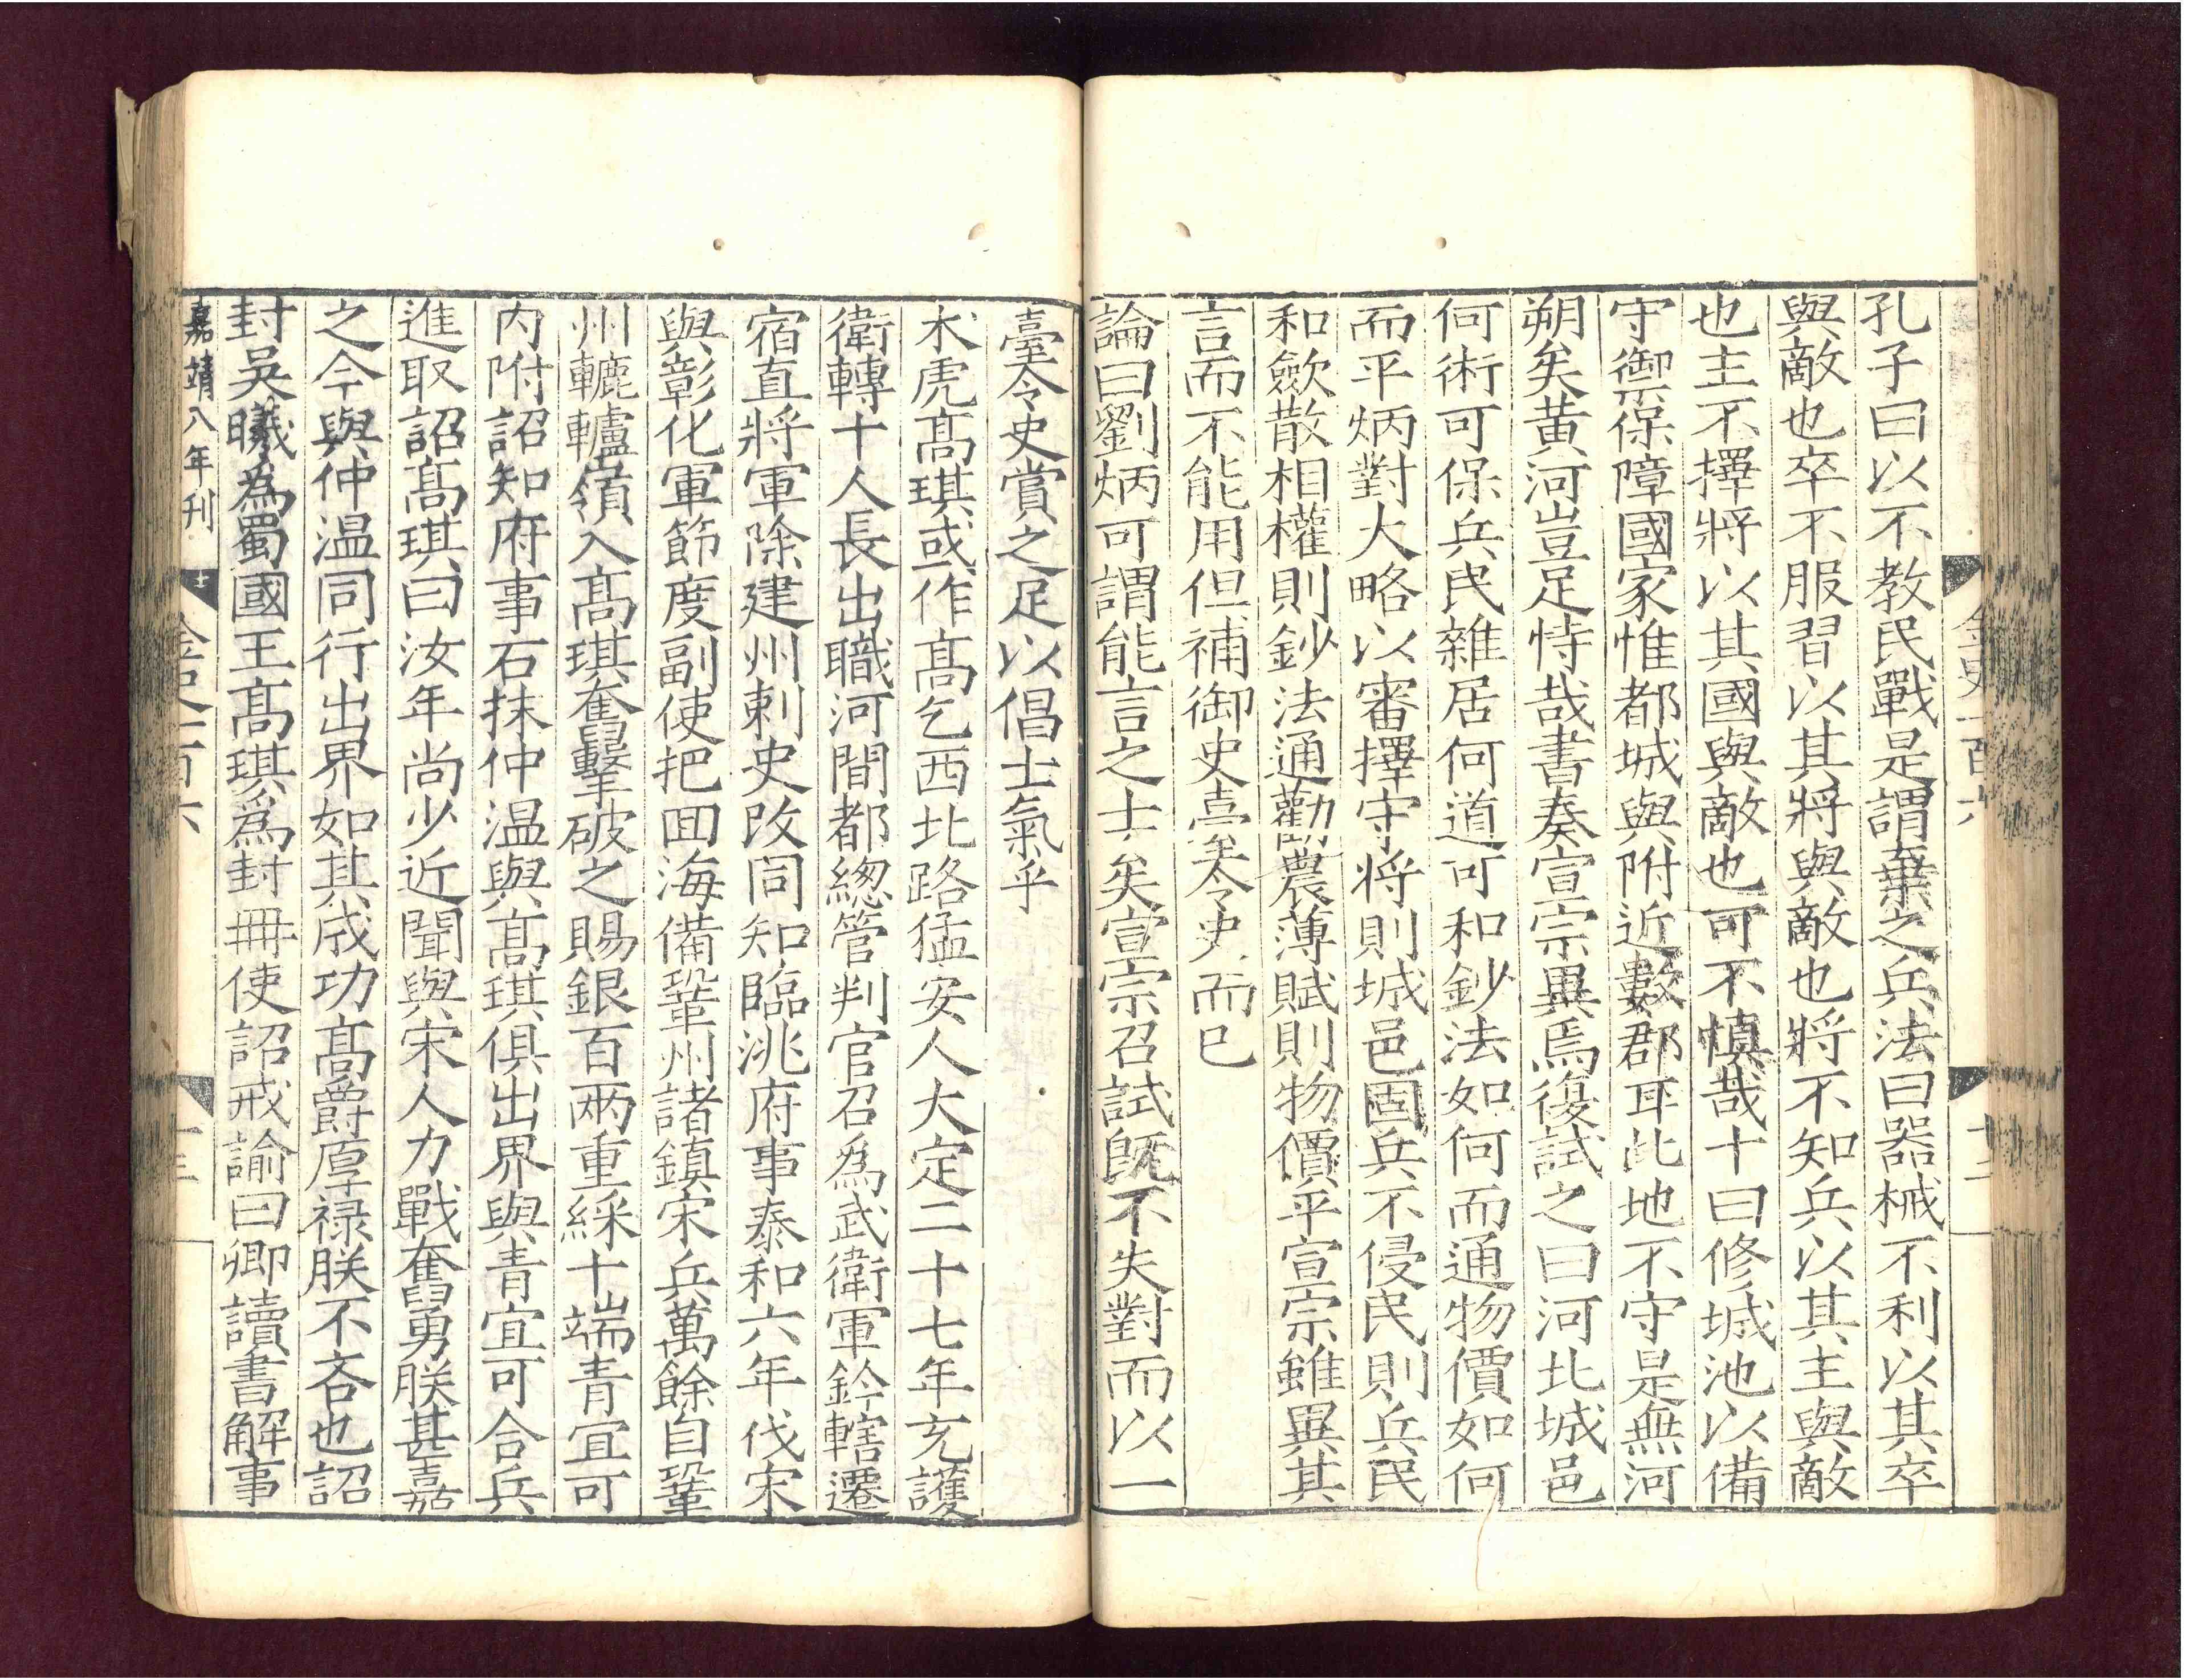 金史一百六
十二
孔子曰以不教民戰是謂棄之兵法曰器械不利以其卒
與敵也卒不服習以其將與敵也將不知兵以其主與敵
也主不擇將以其國與敵也可不慎哉十曰修城池以備
守禦保障國家惟都城與附近數郡耳此地不守是無河
朔矣黃河豈足恃哉書奏宣宗異焉復試之曰河北城邑
何術可保兵民雜居何道可和鈔法如何而通物價如何
而平炳對大略以審擇守將則城邑固兵不侵民則兵民
和斂散相權則鈔法通勸農薄賦則物價平宣宗雖異其
言而不能用但補御史臺令史而已
論曰劉炳可謂能言之士矣宣宗召試既不失對而以一
臺令史賞之足以倡士氣乎
朮虎高琪或作高乞西北路猛安人大定二十七年充護
衛轉十人長出職河間都總管判官召為武衛軍鈐轄遷
宿直將軍除建州刺史改同知臨洮府事泰和六年伐宋
與彰化軍節度副使把回海備鞏州諸鎮宋兵萬餘自鞏
州轆轤嶺入高琪奮擊破之賜銀百兩重綵十端青宜可
內附詔知府事石抹仲溫與高琪俱出界與青宜可合兵
進取詔高琪曰汝年尚少近聞與宋人力戰奮勇朕甚嘉
之今與仲溫同行出界如其成功高爵厚祿朕不吝也詔
封吳曦為蜀國王高琪為封冊使詔戒諭曰卿讀書解事
嘉靖八年刊
金史一百六
十三